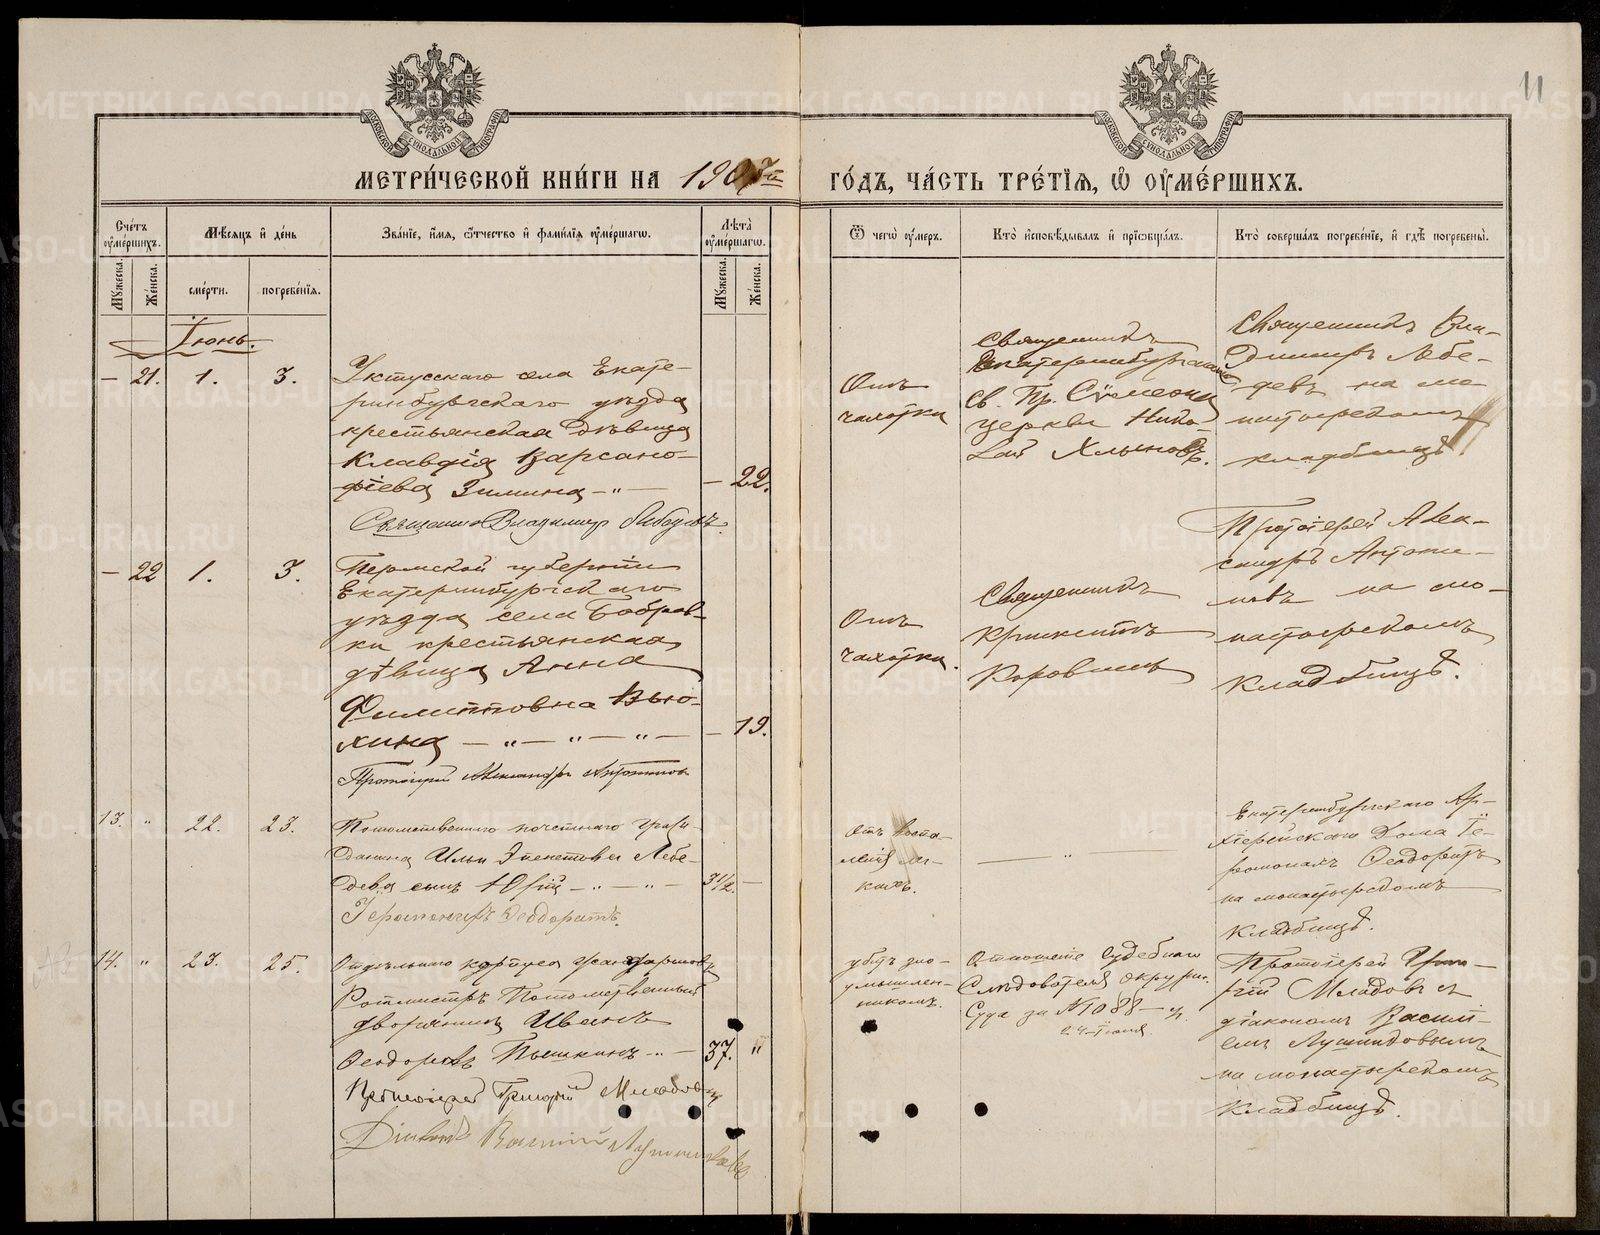 11
МЕТРИ́ЧЕСКОЙ КНИ́ГИ НА 1907й ГО́ДЪ, ЧА́СТЬ ТРЕ́ТІѦ, Ѽ ОУ҆МЕ́РШИХЪ.
Сче́тъ оу҆ме́ршихъ.
Мѣ́сяцъ и҆ де́нь
Зва́нїе, и҆́мѧ, ѻ҆́тчество и҆ фами́лїѧ оу҆ме́ршагѡ.
Лѣ́та оу҆ме́ршагѡ.
Ѿ чегѡ̀ оу҆́меръ.
Кто̀ и҆сповѣ́дывалъ и҆ прїѡбща́лъ.
Кто̀ соверша́лъ погребе́нїе, и҆ гдѣ̀ погребены̀.
Мꙋ́жеска.
Же́нска.
сме́рти.
погребе́нїѧ.
Мꙋ́жеска.
Же́нска.
Іюнь.
— 21. 1. 3.
Уктусскаго села Екате-
ринбургскаго уѣзда
крестьянская дѣвица
Клавдія Варсано-
фіева Зимина — „ — — 22.
Священникъ Владимир Лебедевъ
Отъ
чахотки
Священникъ
Екатеринбургской
св. Пр. Сѵмеона
церкви Нико-
лай Хлыновъ.
Священникъ Вла-
димиръ Лебе-
девъ на мо
настырскомъ
кладбищѣ
— 22 1. 3.
Пермской губерніи
Екатеринбургскаго
уѣзда села Бобров-
ки крестьянская
дѣвица Анна
Филипповна Вью-
хина — „ — „ — „ — — 19.
Протоіерей Александръ Антониновъ
Отъ
чахотки.
Священникъ
Иннокентій
Коровинъ
Протоіерей Алек-
сандръ Антони-
новъ на мо-
настырскомъ
кладбищѣ.
13. „ 22. 23.
Потомственнаго почетнаго граж-
данина Ильи Эпенетова Лебе-
дева сынъ Юрій — „ — „ — 3 1/2. —
Іеромонахъ Ѳеодоритъ.
Отъ воспа-
ленія лег-
кихъ.
— „ —
Екатеринбургскаго Ар-
хіерейскаго Дома Іе-
ромонахъ Ѳеодоритъ
на монастырскомъ
кладбищѣ.
14. „ 23. 25.
Отдѣльнаго корпуса жандармовъ
Ротмистръ Потомственный
дворянинъ Иванъ
Ѳеодоровъ Пышкинъ — „ — 37. „
Протоіерей Григорій Младовъ
Діаконъ Василій
убитъ зло-
умышлен-
никомъ.
Отношеніе Судебнаго
Слѣдователя Окружн.
Суда за № 1088
24 Іюня
Протоіерей Григо-
рій Младовъ съ
діакономъ Васил-
емъ
на монастырскомъ
кладбищѣ.
METRIKI.GASO-URAL.RU